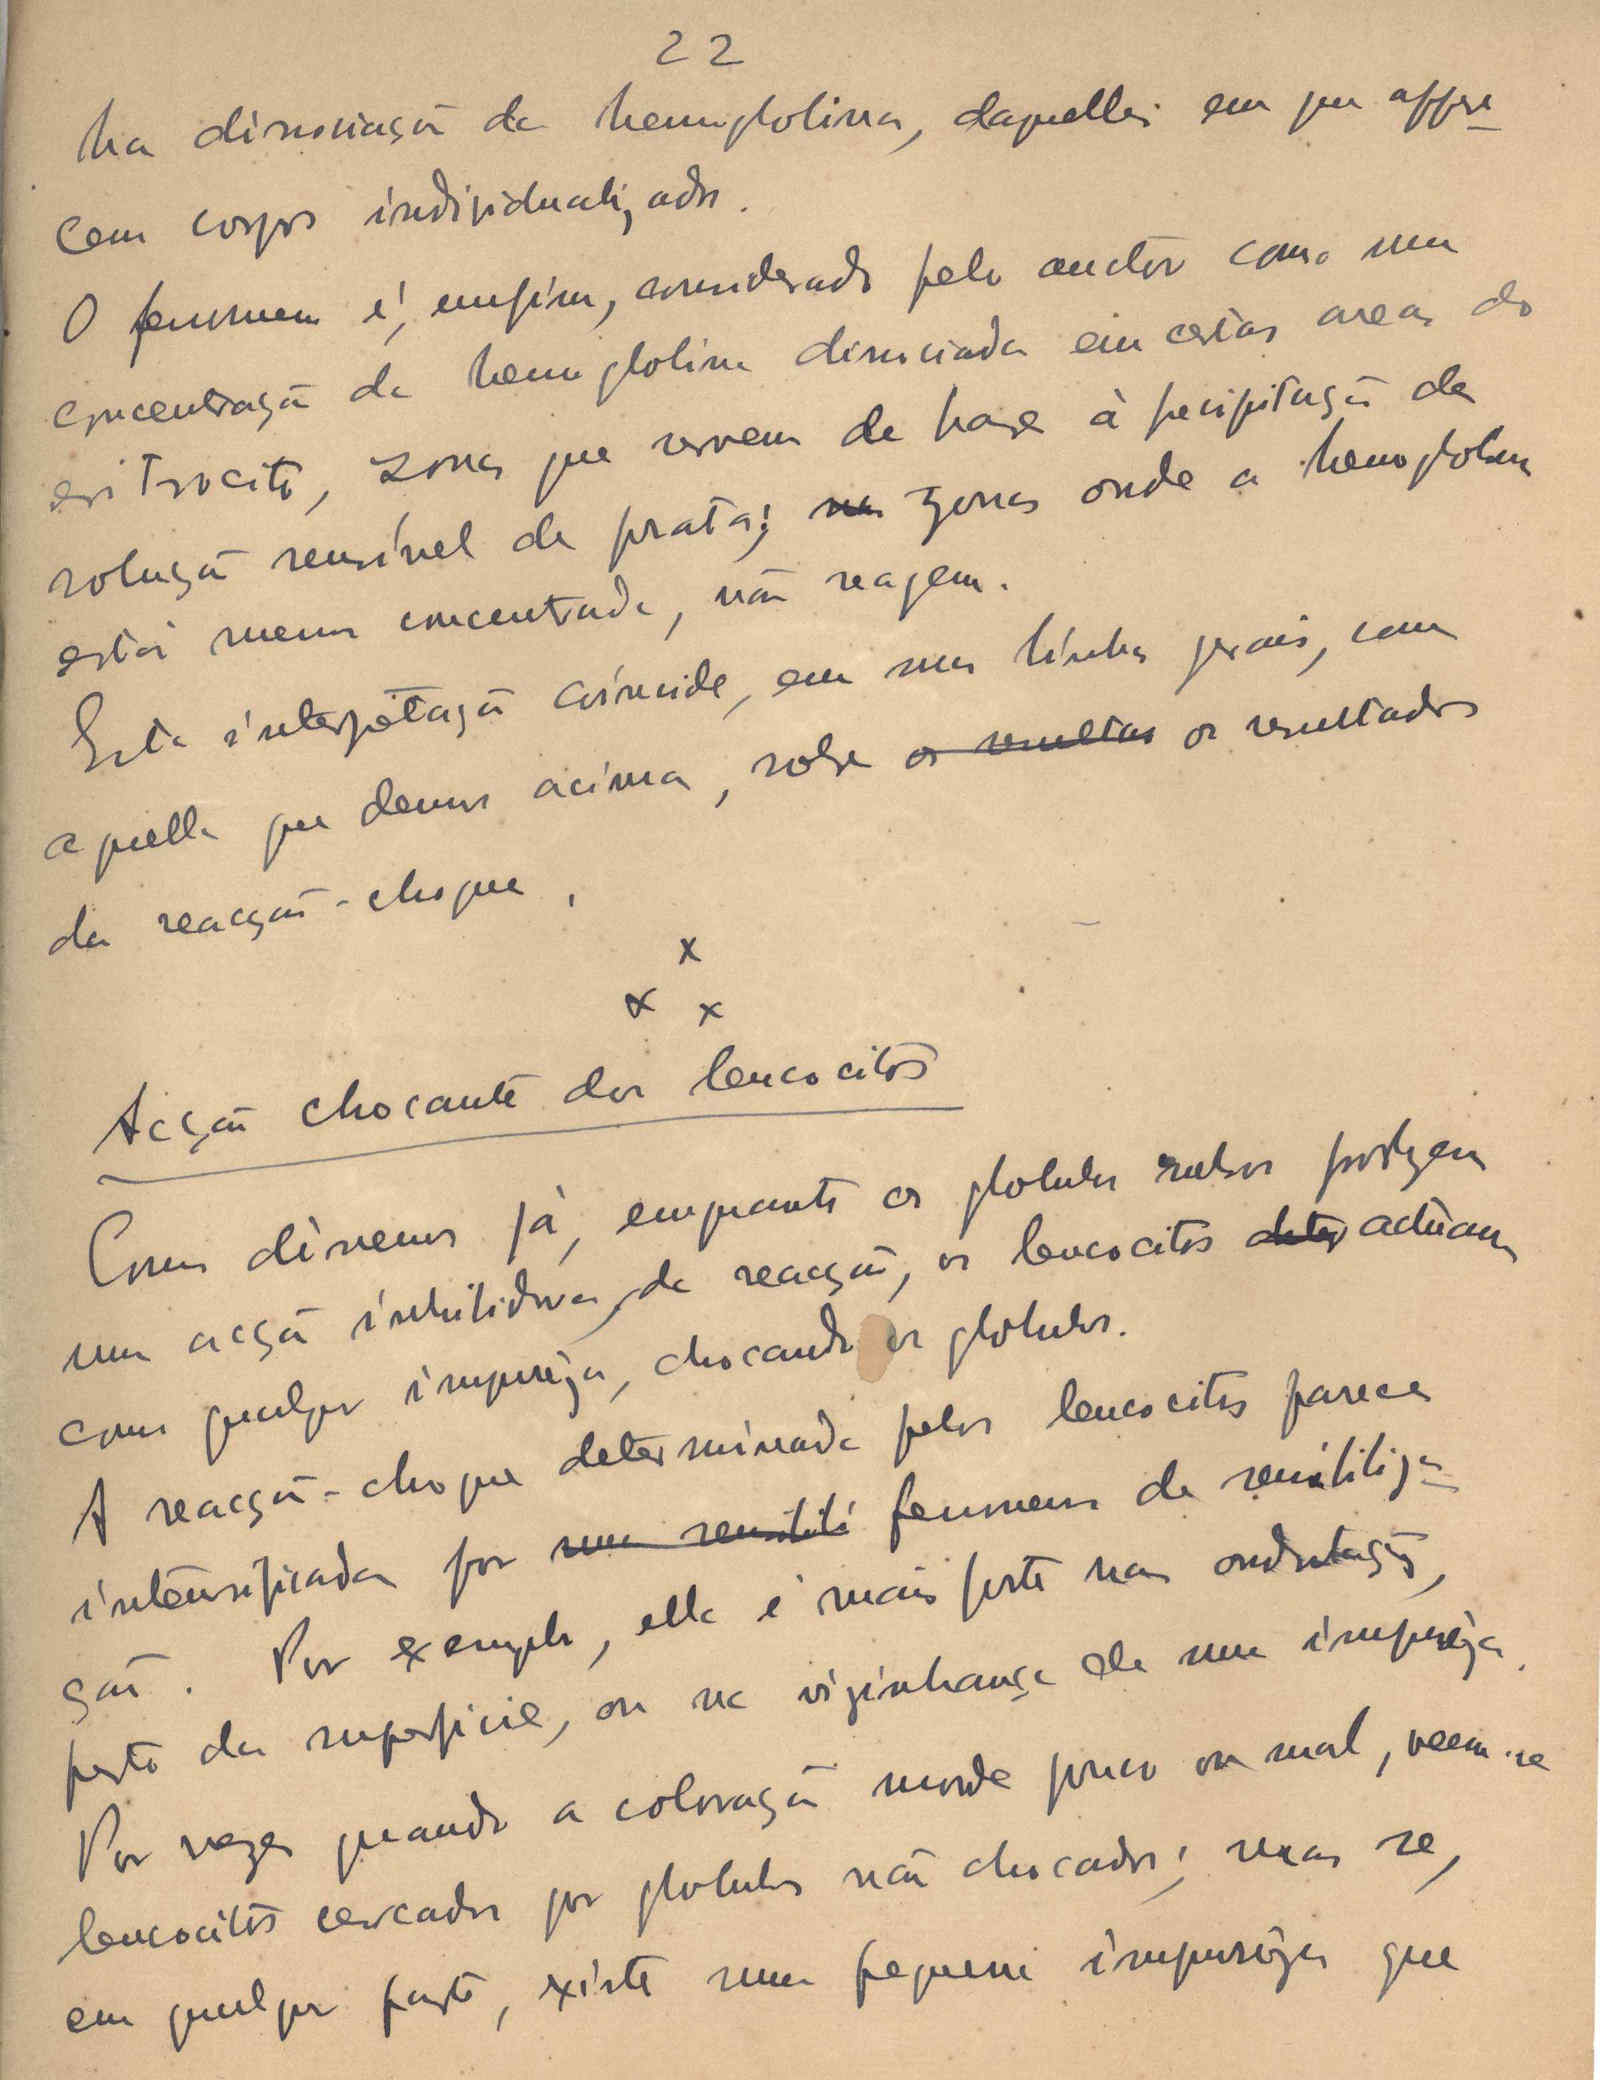 22
ha dissociação da hemoglobina, daquelles em que appare-
cem corpos individualizados.
O fenomeno é, emfim, considerado pelo auctor como uma
concentração da hemoglobina dissociada em certas areas do
eritrocito, zonas que servem de base à precipitação da
solução sensível de prata; nas zonas onde a hemoglobina
está menos concentrada, não reagem.
Esta interpretação coincide, em suas linhas gerais, com
aquella que demos acima, sobre os resultas os resultados
da reacção-choque.
x
x x
Acção chocante dos leucocitos
Como dissemos já, emquanto os globulos rubros produzem
uma acção inhibidora, da reacção, os leucocitos deter actuam
como qualquer impureza, chocando os globulos.
A reacção-choque determinada pelos leucocitos parece
intensificada por uma sensibili fenomenos de sensibiliza-
ção. Por exemplo, ella é mais forte nas ondulações,
perto da superficie, ou na vizinhança de uma impureza.
Por vezes quando a coloração morde pouco ou mal, veem-se
leucocitos cercados por globulos não chocados; mas se,
em qualquer parte, existe uma pequena impureza que